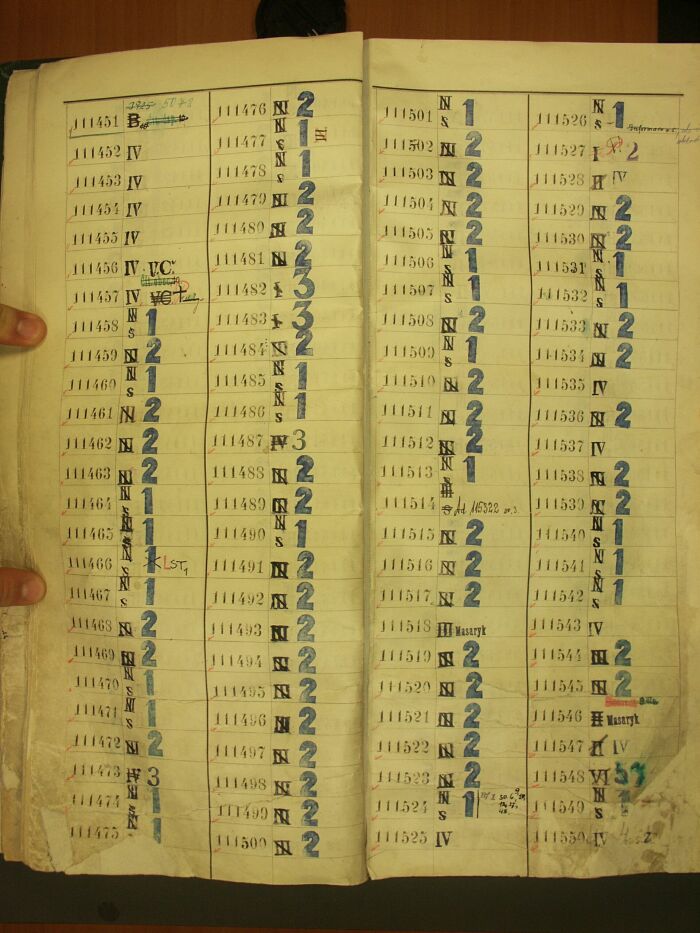 111451 B
111452 IV
111453 IV
111454 IV
111455 IV
111456 IV V.C.
111457 IV VC
111458 N s 1
111459 N 2
111460 N s 1
111461 N 2
111462 N 2
111463 N 2
111464 N s 1
111465 N s 1
111466 N 1 LST1
111467 N s 1
111468 N 2
111469 N 2
111470 N s 1
111471 N s 1
111472 N 2
111473 IV 3
111474 N s 1
111475 N 1
111476 N 2
111477 N s 1
111478 N s 1
111479 N 2
111480 N 2
111481 N 2
111482 I 3
111483 I 3
111484 N 2
111485 N s 1
111486 N s 1
111487 IV 3
111488 N 2
111489 N 2
111490 N s 1
111491 N 2
111492 N 2
111493 N 2
111494 N 2
111495 N 2
111496 N 2
111497 N 2
111498 N 2
111499 N 2
111500 N 2
111501 N s 1
111502 N 2
111503 N 2
111504 N 2
111505 N 2
111506 N s 1
111507 N s 1
111508 N 2
111509 N s 1
111510 N 2
111511 N 2
111512 N 2
111513 N s 1
111514 s Ad 115322
111515 N 2
111516 N 2
111517 N 2
111518 III Masaryk
111519 N 2
111520 N 2
111521 N 2
111522 N 2
111523 N 2
111524 N s 1
111525 IV
111526 N s 1
111527 I 2
111528 II IV
111529 N 2
111530 N 2
111531 N s 1
111532 N s 1
111533 N 2
111534 N 2
111535 IV
111536 N 2
111537 IV
111538 N 2
111539 N 2
111540 N s 1
111541 N s 1
111542 N s 1
111543 IV
111544 N 2
111545 N 2
111546 II Masaryk
111547 II IV
111548 VI
111549 N s 1
111550 IV